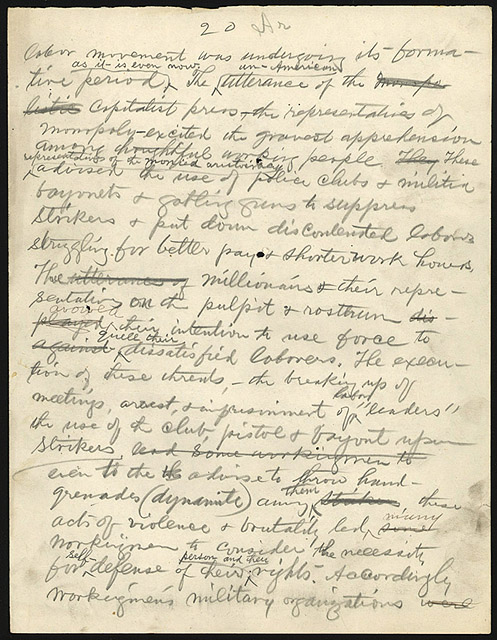 20 Ar
labor movement was undergoing its forma-
as it is even now un-American
tive period. The utterance of the monopo
listic capitalist press & the representatives of
monopoly - excited the gravest apprehension
among thoughtful working people. They These
representatives of the monied aristocracy
advised the use of police clubs & militia
bayonets & gatling guns to suppress
strikers & put down discontented laborers
struggling for better pay & shorter work hours.
The utterances of Millionaires & their repre-
sentatives on the pulpit & rostrum dis-
avowed
played their intention to use force to
quell their
against dissatisfied laborers. The execu-
tion of these threats, - the breaking up of
labor
meetings, arrest, & imprisonment of "leaders"
the use of the club pistol & bayonet upon
strikers, and some workingmen to
even to the advise to throw hand-
them
grenades (dynamite) among strikers these
many
acts of violence & brutality led some
workingmen to consider the necessity
self person and their
for defense of their rights. Accordingly
workingmens military organizations were